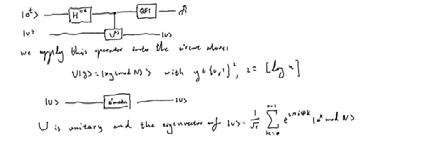 |0ᵗ> H^{⊗t} QFT
|u> U^j |u>
we apply this operator into the circuit above:
U|y> = |ay mod N> with y ∈ {0,1}^2, 2 = [log
|u> |u>
U is unitary and the eigenvector of |u> = 1/√r ∑_{k=0}^{r-1} |a^k mod N>